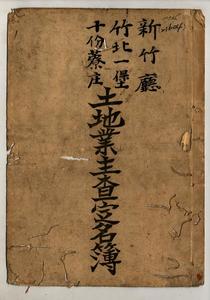 新竹廳
竹北一堡
十份藔庄
土地業主查定名簿